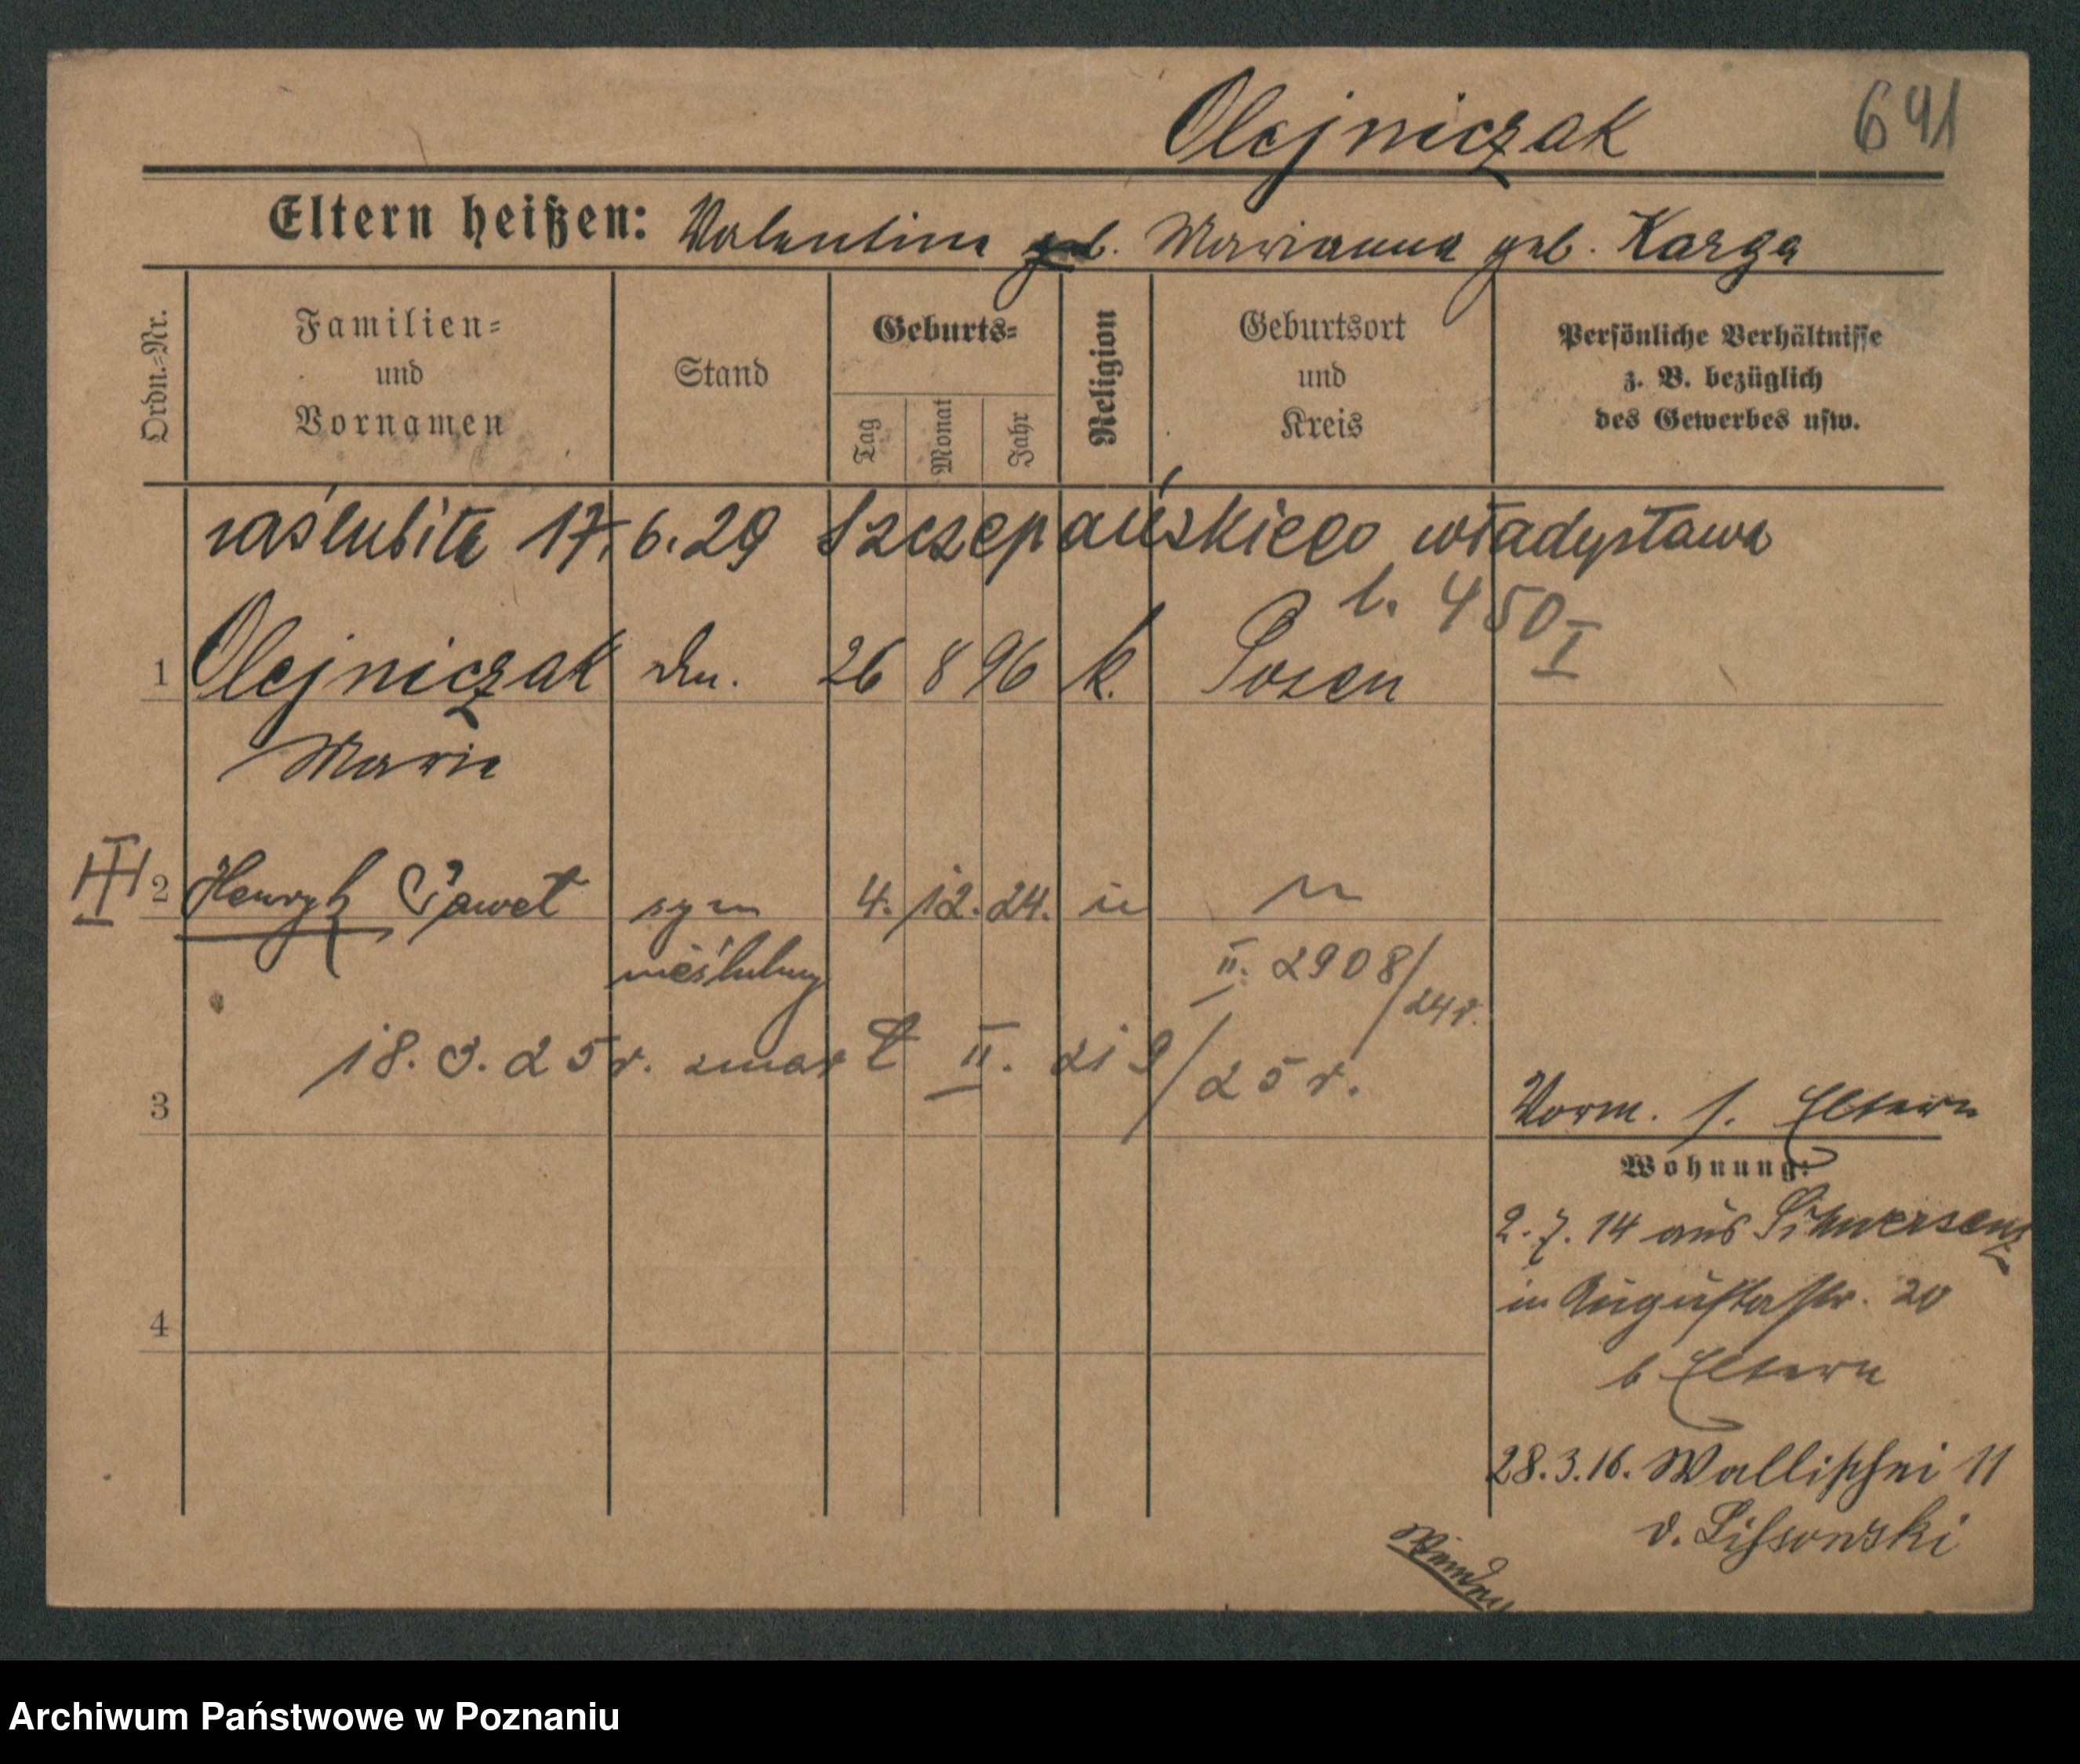 Olejniczak 691
Eltern heißen: Valentin geb. Marianna geb. Karga
Ordn.=Nr.
Familien=
und
Vornamen
Stand
Geburts=
Tag
Monat
Jahr
Religion
Geburtsort
und
Kreis
Persönliche Verhältnisse
z. B. bezüglich
des Gewerbes usw.
zaślubiła 17.6.29 Szczepańskiego Władysława
l. 450 I
1 Olejniczak 26 8 96 k. Posen
Maria
2 Henryk Paweł syn 4. 12. 24. "
nieślubny II. 2908/24r.
18. 3. 25 r. zmarł II. 219/25 r.
3
Vorm. s. Eltern
Wohnung:
2. 7. 14 aus Schwersenz
in Augustastr. 20
b Eltern
4
28. 3. 16. Wallischei 11
b. Lissowski
Wenden